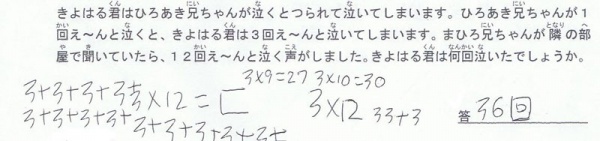 きよはる君はひろあき兄ちゃんが泣くとつられて泣いてしまいます。ひろあき兄ちゃんが１
回え～んと泣くと、きよはる君は３回え～んと泣いてしまいます。まひろちゃんが隣の部
屋で聞いていたら、１２回え～んと泣く声がしました。きよはる君は何回泣いたでしょうか。
3×9=27 3×10=30
3+3+3+3+
3×12=□
3×12 33+3
答 36回
3+3+3+3+
3+3+3+3+